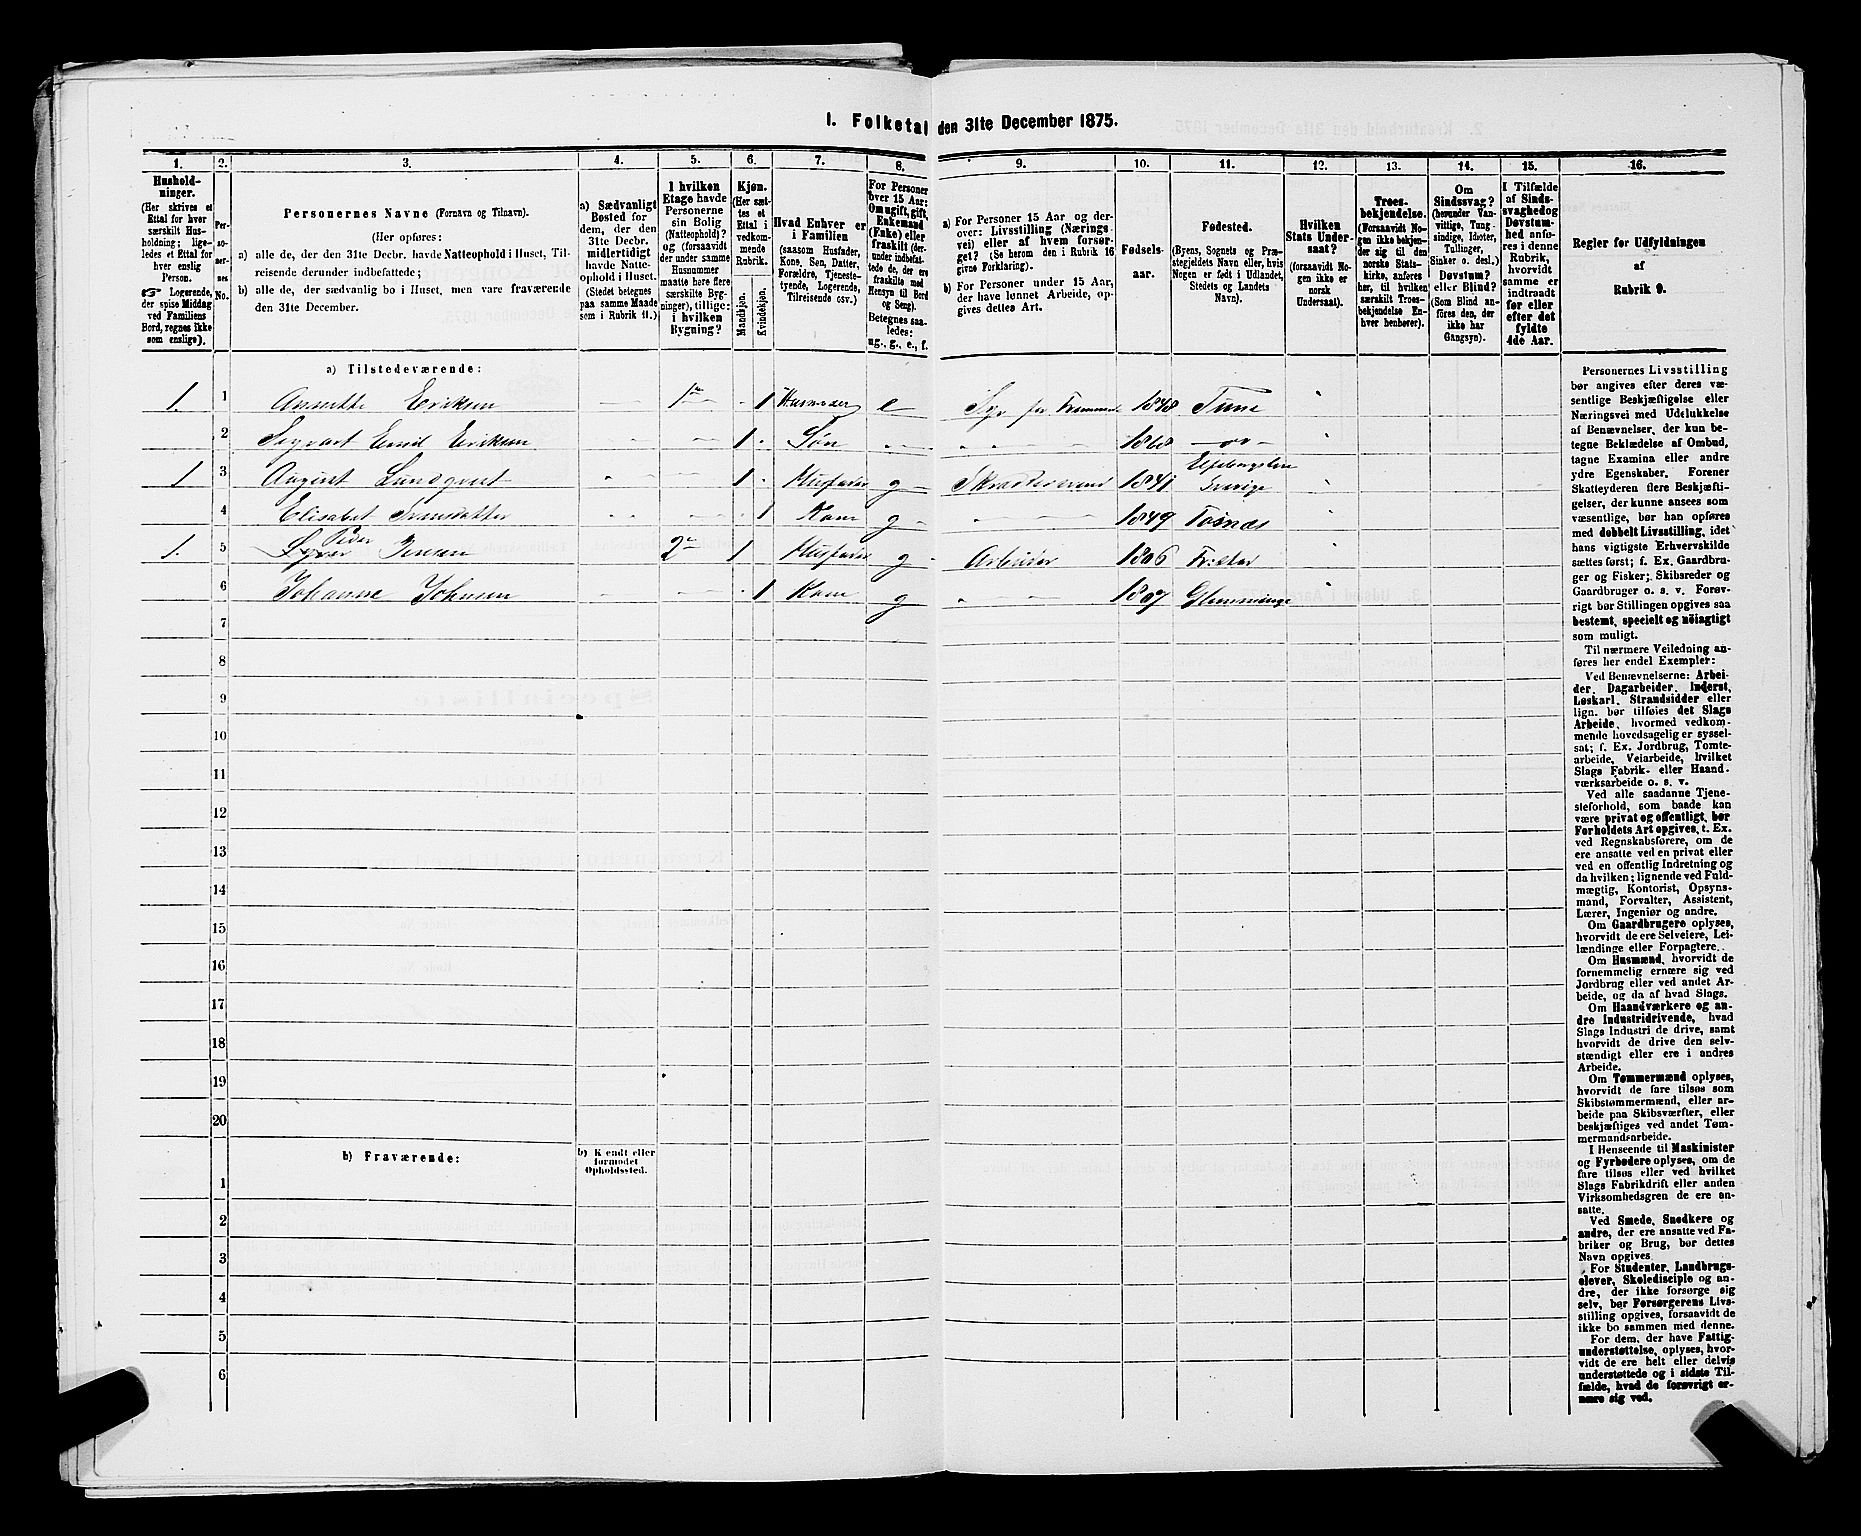 I. Folketal den 31te December 1875.
1. 2. 3. 4. 5. 6. 7. 8. 9. 10. 11. 12. 13. 14. 15. 16.
Hushold-
ninger.
(Her skrives et
Ettal for hver
særskilt Hus-
holdning; lige-
ledes et Ettal for
hver enslig
Person.
☞ Logerende,
der spise Middag
ved Familiens
Bord, regnes ikke
som enslige).
Per-
so-
ner-
nes
No.
Personernes Navne (Fornavn og Tilnavn).
(Her opføres:
a) alle de, der den 31te Decbr. havde Natteophold i Huset, Til-
reisende derunder indbefattede;
b) alle de, der sædvanlig bo i Huset, men vare fraværende
den 31te December.
a) Sædvanligt
Bosted for
dem, der den
31te Decbr.
midlertidigt
havde Natte-
ophold i Huset.
(Stedet betegnes
paa samme Maade
som i Rubrik 11.)
I hvilken
Etage havde
Personerne
sin Bolig
(Natteophold)?
og (forsaavidt
der under samme
Husnummer
maatte høre flere
særskilte Byg-
ninger), tillige:
i hvilken
Bygning?
Kjøn.
(Her sæt-
tes et
Ettal i
vedkom-
mende
Rubrik.
Mandkjøn.
Kvindekjøn.
Hvad Enhver er
i Familien
(saasom Husfader,
Kone, Søn, Datter,
Forældre, Tjeneste-
tyende, Logerende,
Tilreisende osv.)
For Personer
over 15 Aar:
Om ugift, gift,
Enkemand
(Enke) eller
fraskilt (der-
under indbefat-
tede de, der ere
fraskilte med
Hensyn til Bord
og Seng).
Betegnes saa-
ledes:
ug., g., e., f.
a) For Personer 15 Aar og der-
over: Livsstilling (Nærings-
vei) eller af hvem forsør-
get? (Se herom den i Rubrik 16
givne Forklaring).
b) For Personer under 15 Aar,
der have lønnet Arbeide, op-
gives dettes Art.
Fødsels-
aar.
Fødested.
(Byens, Sognets og Præ-
stegjeldets Navn eller, hvis
Nogen er født i Udlandet,
Stedets og Landets
Navn).
Hvilken
Stats Under-
saat?
(forsaavidt No-
gen ikke er
norsk
Undersaat).
Troes-
bekjendelse.
(Forsaavidt No-
gen ikke bekjen-
der sig til den
norske Stats-
kirke, anføres
her, til hvilken
særskilt Troes-
bekjendelse En-
hver henhører).
Om
Sindssvag?
(herunder Van-
vittige, Tung-
sindige, Idioter,
Tullinger,
Sinker o. desl.)
Døvstum?
eller Blind?
(Som Blind an-
føres den, der
ikke har
Gangsyn).
I Tilfælde
af Sinds-
svaghed og
Døvstum-
hed anfø-
res i denne
Rubrik,
hvorvidt
samme er
indtraadt
før eller
efter det
fyldte
4de Aar.
Regler for Udfyldningen
af
Rubrik 9.
a) Tilstedeværende:
1. 1 Annette Eriksen 1 1 Husmoder e Syr for Fremmede 1848 Tune
2 Sigvart Emil Eriksen 1 Søn 1868
1 3 August Lundqvist 1 Husfader g 1841 Sverige
4 Elisabet 1 Kone g 1849 Tosnæs
1. 5 Peder Jensen 2 1 Husfader g Arbeider 1806
6 Johanne Johnsen 1 Kone g 1807 Glemminge
7
8
9
10
11
12
13
14
15
16
17
18
19
20
b) Fraværende:
b) Kjendt eller
formodet
Opholdssted.
1
2
3
4
5
6
Personernes Livsstilling
bør angives efter deres væ-
sentlige Beskjæftigelse eller
Næringsvei med Udelukkelse
af Benævnelser, der kun be-
tegne Beklædelse af Ombud,
tagne Examina eller andre
ydre Egenskaber. Forener
Skatteyderen flere Beskjæfti-
gelser, der kunne ansees som
væsentlige, bør han opføres
med dobbelt Livsstilling, idet
hans vigtigste Erhvervskilde
sættes først; f. Ex. Gaardbru-
ger og Fisker; Skibsreder og
Gaardbruger o. s. v. Forøv-
rigt bør Stillingen opgives saa
bestemt, specielt og nöiagtigt
som muligt.
Til nærmere Veiledning an-
føres her endel Exempler:
Ved Benævnelserne: Arbei-
der, Dagarbeider, Inderst,
Løskarl, Strandsidder eller
lign. bør tilføies det Slags
Arbeide, hvormed vedkom-
mende hovedsagelig er syssel-
sat; f. Ex. Jordbrug, Tomte-
arbeide, Veiarbeide, hvilket
Slags Fabrik- eller Haand-
værksarbeide o. s. v.
Ved alle saadanne Tjene-
steforhold, som baade kan
være privat og offentligt, bør
Forholdets Art opgives, t. Ex.
ved Regnskabsførere, om de
ere ansatte ved en privat eller
ved en offentlig Indretning og
da hvilken; lignende ved Fuld-
mægtig, Kontorist, Opsyns-
mand, Forvalter, Assistent,
Lærer, Ingeniør og andre.
Om Gaardbrugere oplyses,
hvorvidt de ere Selveiere, Lei-
lændinge eller Forpagtere.
Om Husmænd, hvorvidt de
fornemmelig ernære sig ved
Jordbrug eller ved andet Ar-
beide, og da af hvad Slags.
Om Haandværkere og an-
dre Industridrivende, hvad
Slags Industri de drive, samt
hvorvidt de drive den selv-
stændigt eller ere i andres
Arbeide.
Om Tømmermænd oplyses,
hvorvidt de fare tilsøs som
Skibstømmermænd, eller ar-
beide paa Skibsværfter, eller
beskjæftiges ved andet Tøm-
mermandsarbeide.
I Henseende til Maskinister
og Fyrbødere oplyses, om de
fare tilsøs eller ved hvilket
Slags Fabrikdrift eller anden
Virksomhedsgren de ere an-
satte.
Ved Smede, Snedkere og
andre, der ere ansatte ved Fa-
briker og Brug, bør dettes
Navn opgives
For Studenter, Landbrugs-
elever, Skoledisciple og an-
dre, der ikke forsørge sig
selv, bør Forsørgerens Livs-
stilling opgives, forsaavidt de
ikke bo sammen med denne.
For dem, der have Fattig-
understøttelse, oplyses, hvor-
vidt de ere helt eller delvis
understøttede og i sidste Til-
fælde, hvad de forøvrigt er-
nære sig ved.